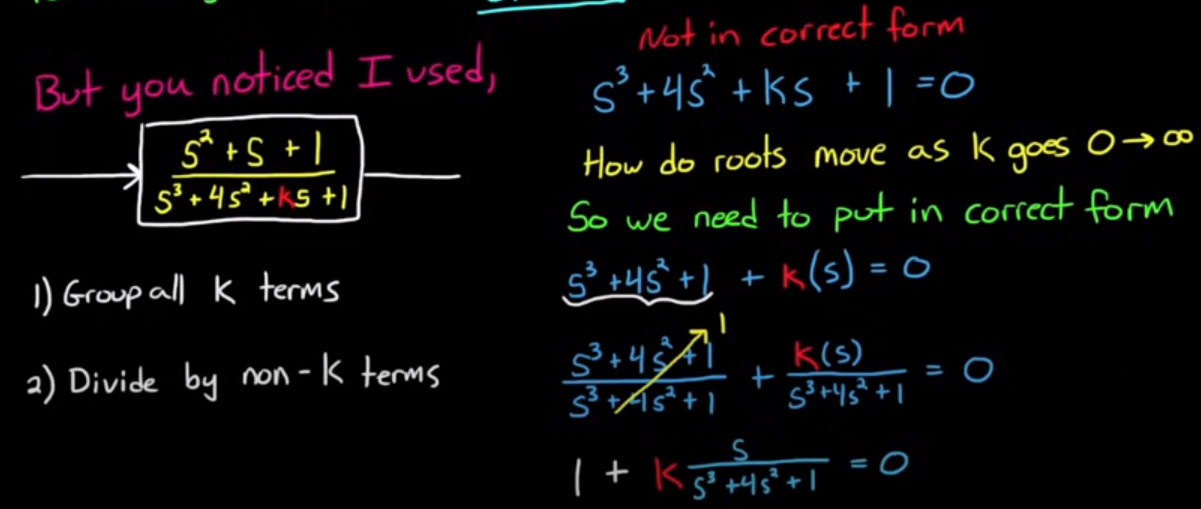 But you noticed I used,
s² + s + 1
s³ + 4s² + ks + 1
1) Group all K terms
2) Divide by non-K terms
Not in correct form
s³ + 4s² + Ks + 1 = 0
How do roots move as K goes 0 → ∞
So we need to put in correct form
s³ + 4s² + 1 + K(s) = 0
s³ + 4s² + 1 1
s³ + 4s² + 1 + K(s) / s³ + 4s² + 1 = 0
1 + K s / s³ + 4s² + 1 = 0